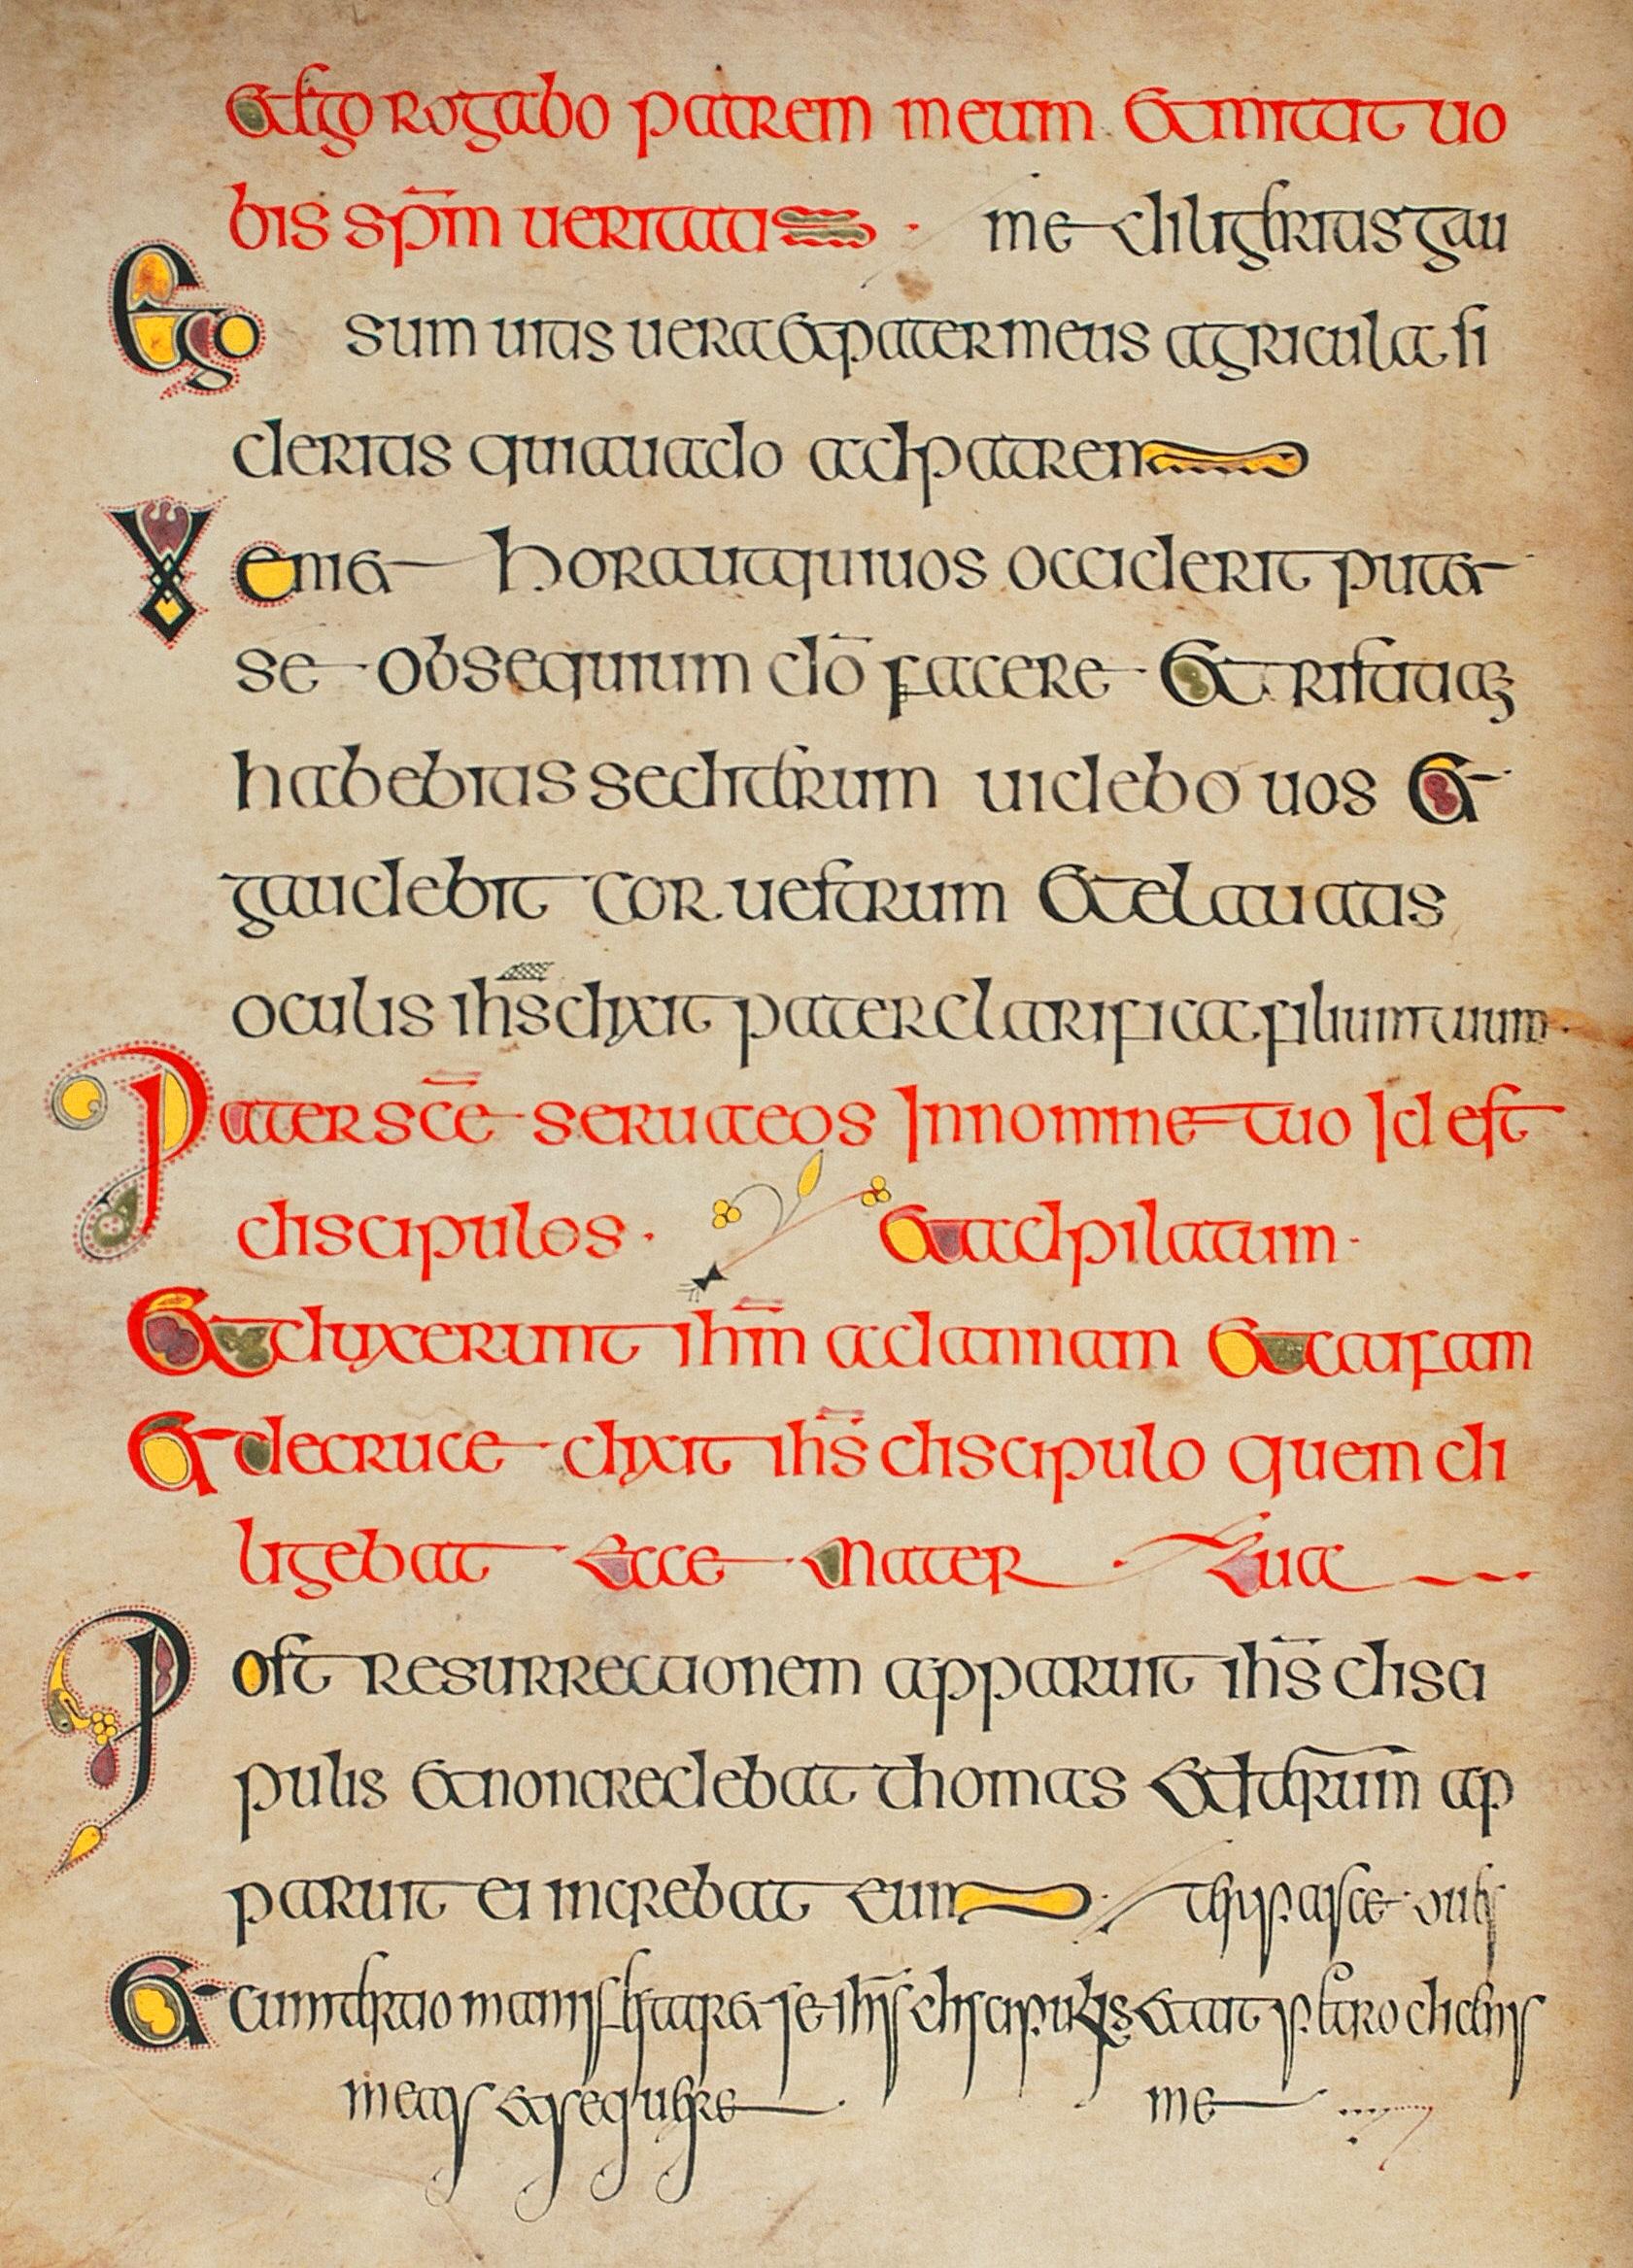 et ego rogabo patrem meum et mitat uo
bis sp̄m ueritatis · me diligeritis gau
Ego sum uitis uera et pater meus agricula si
deritis quia uado ad patrem
Veniet hora ut qui uos occiderit putet
se obsequium dō facere et tristitiaꝫ
habebitis sed iterum uidebo uos et
gaudebit cor uestrum et eleuatis
oculis ihs̄ dixit pater clarifica filium tuum ·
Pater scē serua eos In nomine tuo Id est
discipulos · et ad pilatum ·
Et duxerunt ihm̄ ad annam et caifam
Et de cruce dixit ihs̄ discipulo quem di
ligebat Ecce Mater · Tua
Post resurrectionem apparuit ihs̄ disci
pulis et non credebat thomas et iterum ap
paruit ei increbat eum · ouis
Et cum tertio manifestaret se ihs̄ discipulis et ait petro dicens
meas et sequere · me